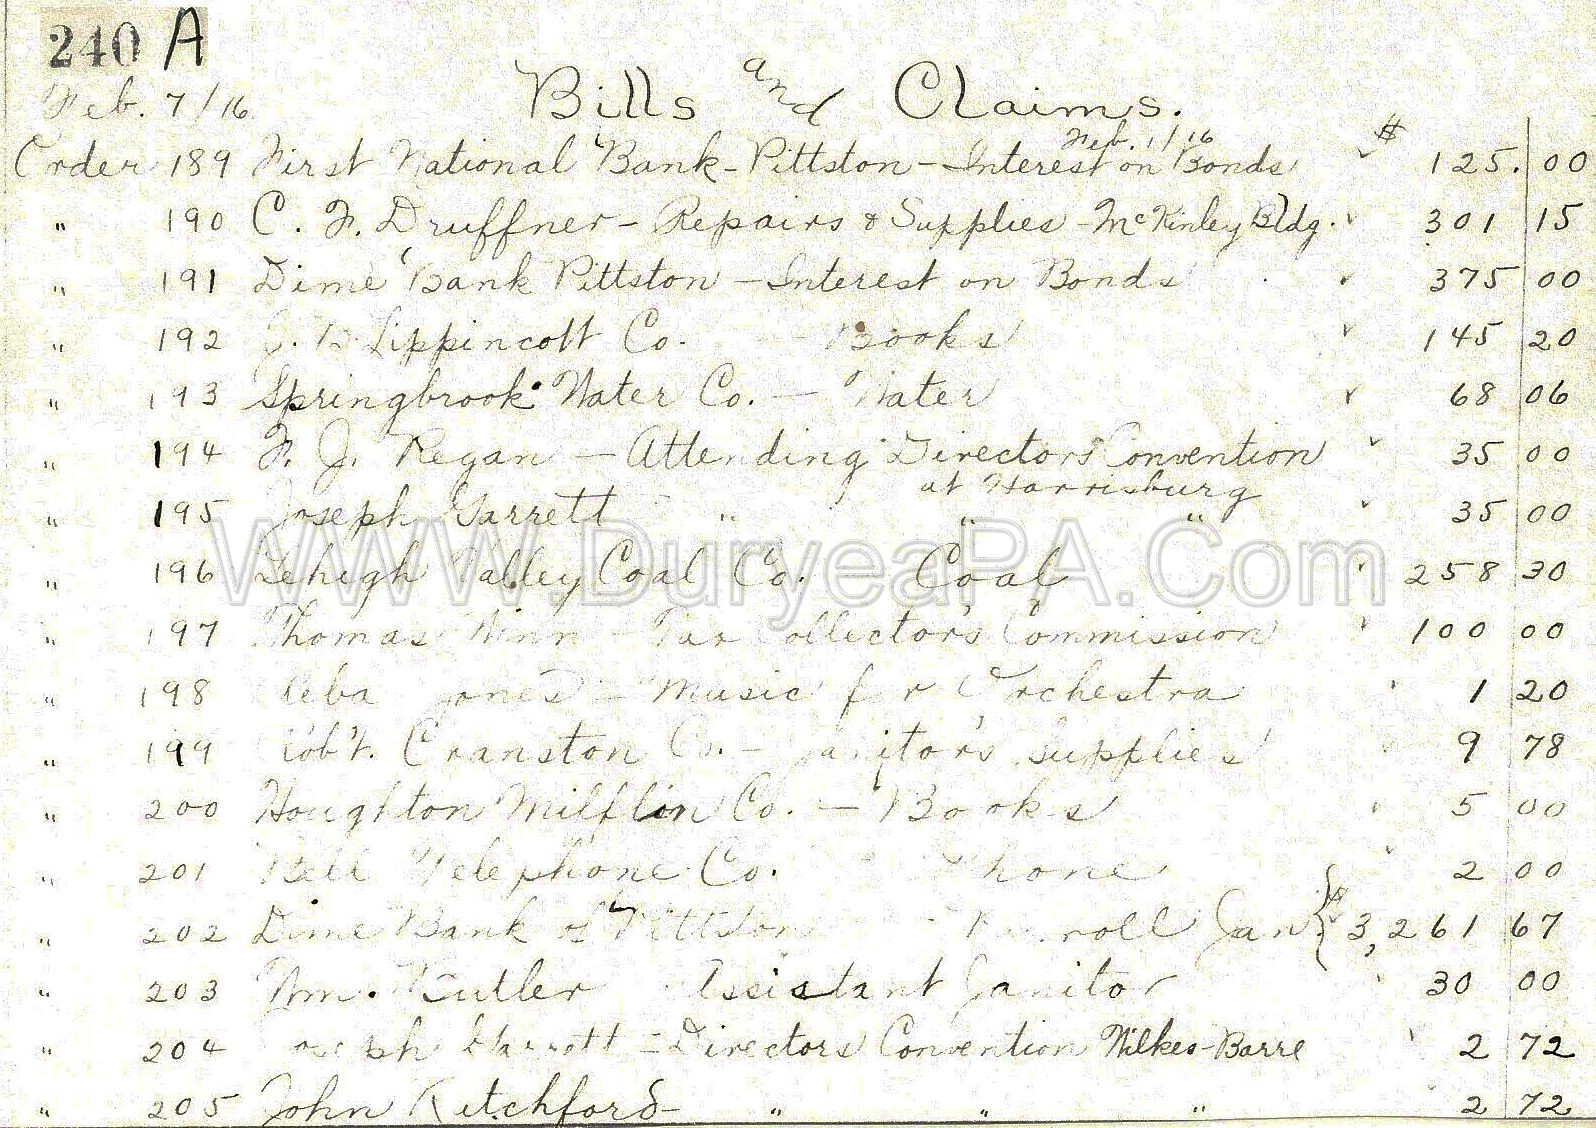 240 A
Feb. 7/16 Bills and Claims.
Feb. 1/16
Order 189 First National Bank - Pittston - Interest on Bonds ✓ $ 125. 00
" 190 C. F. Druffner - Repairs & Supplies - McKinley Bldg. ✓ 301 15
" 191 Dime Bank Pittston - Interest on Bonds ✓ 375 00
" 192 J. B. Lippincott Co. - Books ✓ 145 20
" 193 Springbrook Water Co. - Water ✓ 68 06
" 194 F. J. Regan - Attending Directors Convention ✓ 35 00
at Harrisburg
" 195 Joseph Garrett - " " " ✓ 35 00
" 196 Lehigh Valley Coal Co. - Coal 258 30
" 197 Thomas Winn - Tax Collector's Commission 100 00
" 198 Jones - Music for Orchestra 1 20
" 199 Rob't. Cranston Co. - Janitor's Supplies 9 78
" 200 Houghton Milflin Co. - Books 5 00
" 201 Bell Telephone Co. Phone 2 00
" 202 Dime Bank of Pittston Payroll Jan. { $ 3,261 67
" 203 Wm. Butler Assistant Janitor 30 00
" 204 Joseph Garrett - Directors Convention Wilkes-Barre 2 72
" 205 John Ketchford - " " " 2 72
WWW.DuryeaPA.Com